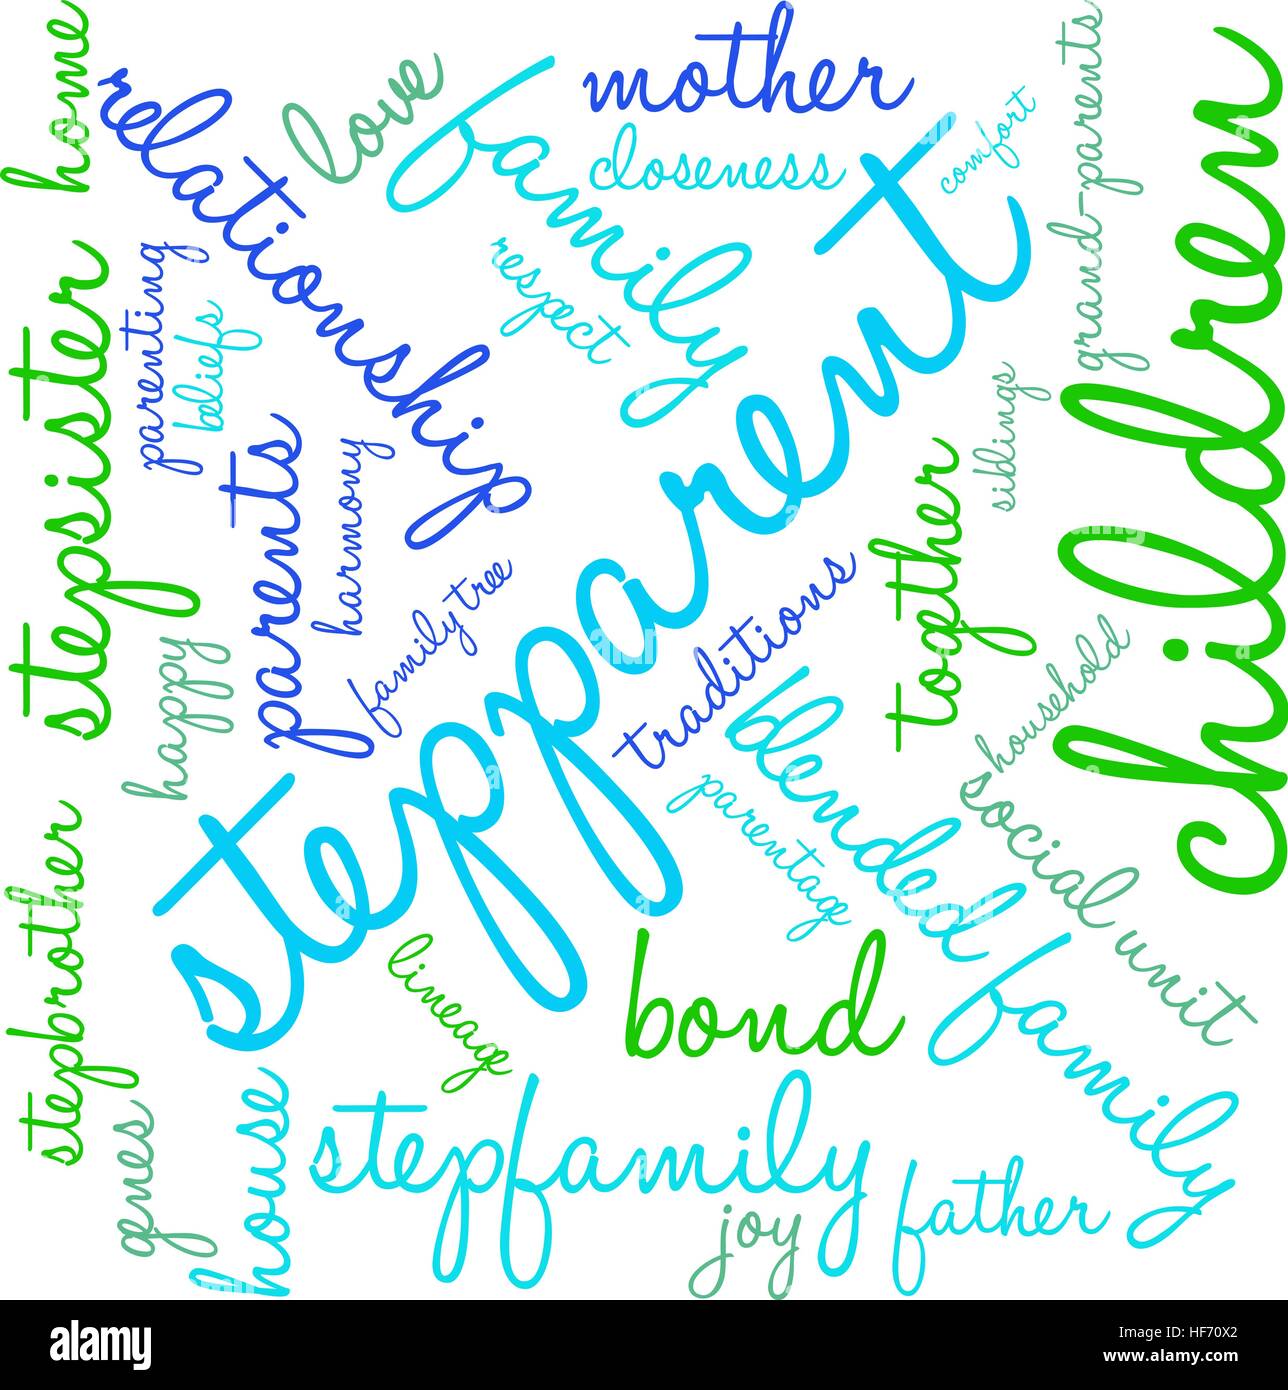 home
relationship
love
family
mother
closeness
comfort
grand-parents
children
respect
stepparent
stepsister
parenting
beliefs
parents
harmony
family tree
siblings
together
traditions
household
happy
blended family
social unit
parentage
stepbrother
lineage
bond
genes
house
stepfamily
joy
father
alamy
Image ID: HF70X2
www.alamy.com